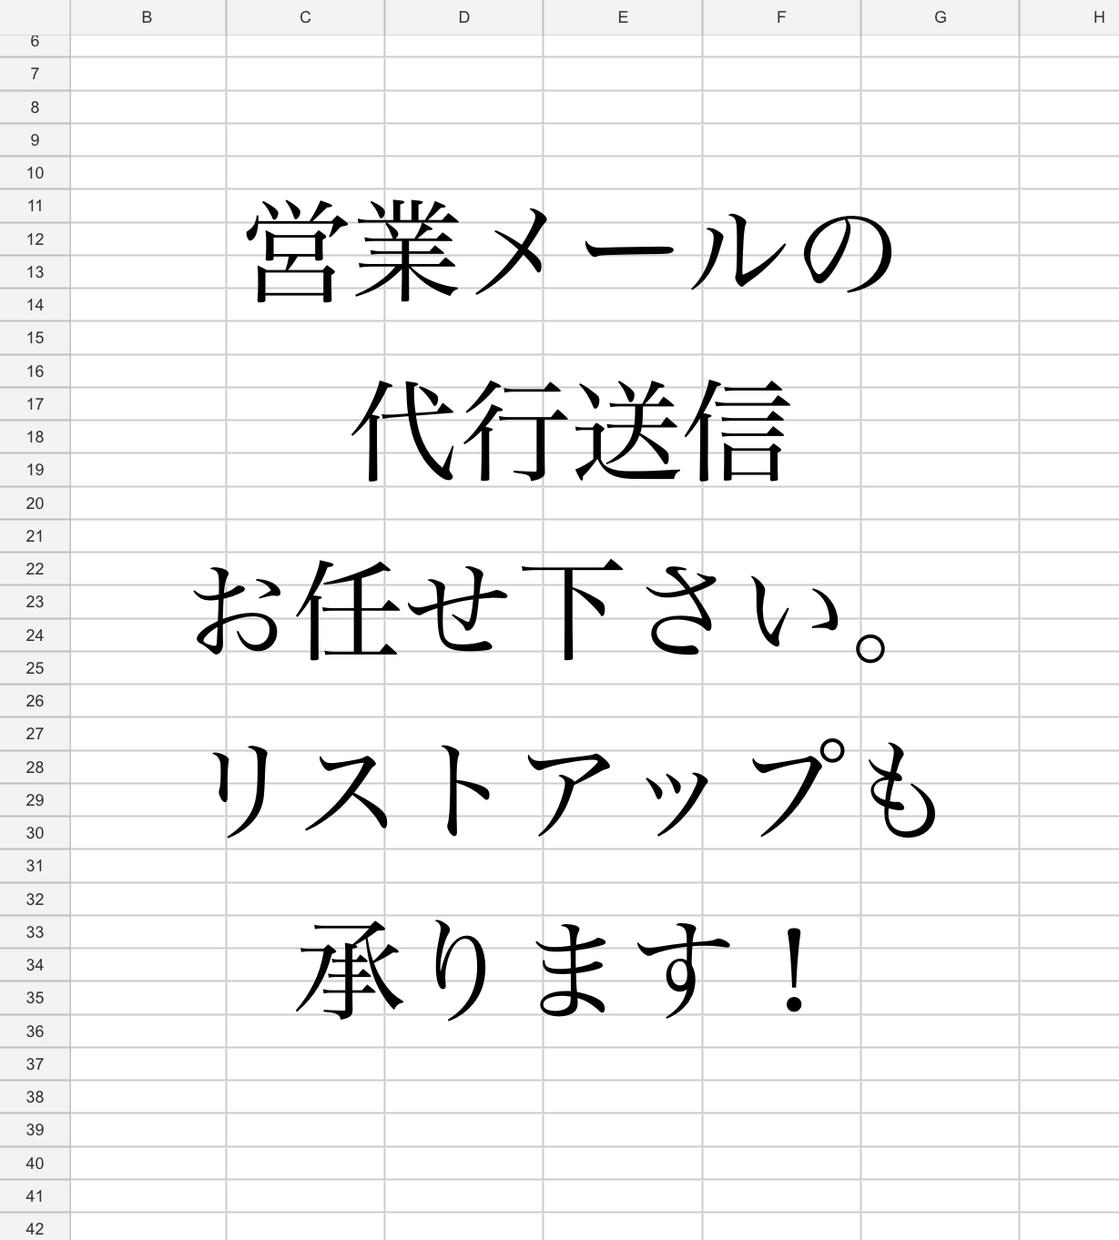 B C D E F G H
6
7
8
9
10
11
12
13
14
15
16
17
18
19
20
21
22
23
24
25
26
27
28
29
30
31
32
33
34
35
36
37
38
39
40
41
42
営業メールの
代行送信
お任せ下さい。
リストアップも
承ります！